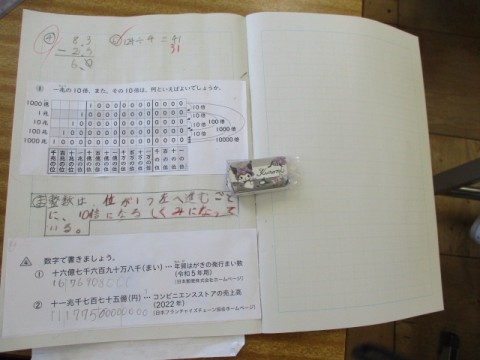 8.3
－2.3
6.0
㋐ 一兆の10倍、また、その10倍は、何といえばよいでしょうか。
1000億 1 0 0 0 0 0 0 0 0 0 0 0
1兆 1 0 0 0 0 0 0 0 0 0 0 0 0
10兆 1 0 0 0 0 0 0 0 0 0 0 0 0 0
100兆 1 0 0 0 0 0 0 0 0 0 0 0 0 0 0
1000兆 1 0 0 0 0 0 0 0 0 0 0 0 0 0 0 0
10倍
10倍
10倍
10倍
100倍
1000倍
10000倍
千兆の位 百兆の位 十兆の位 一兆の位 千億の位 百億の位 十億の位 一億の位 千万の位 百万の位 十万の位 一万の位 千の位 百の位 十の位 一の位
ま 整数は、位が1つ左へ進むごと
に、10倍になるしくみになって
いる。
数字で書きましょう。
① 十六億七千六百九十万八千(まい)…年賀はがきの発行まい数
(令和5年用)
(日本郵便株式会社ホームページ)
② 十一兆千七百七十五億(円)…コンビニエンスストアの売上高
(2022年)
(日本フランチャイズチェーン協会ホームページ)
Kuromi